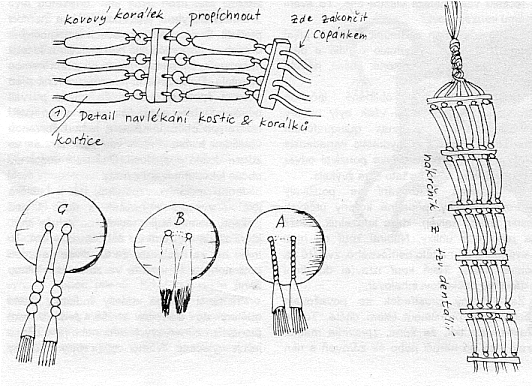 kovový korálek
propíchnout
zde zakončit
copánkem
① Detail navlékání kostic & korálků
kostice
nákrčník z tzv. dentálií
C
B
A